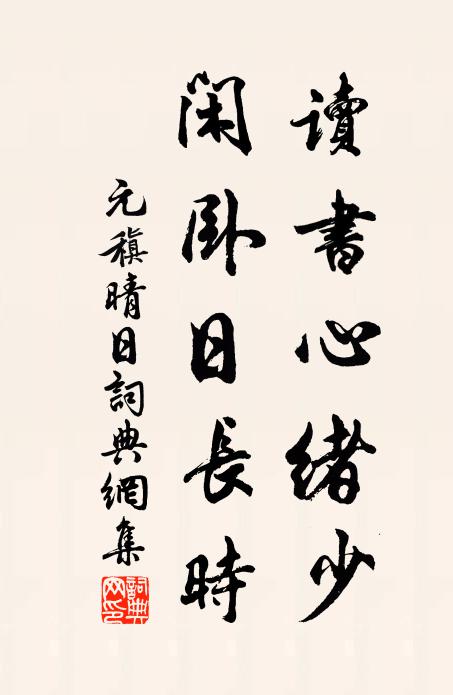 讀書心緒少
閑卧日長時
元稹晴日詞典網集
詞典網印